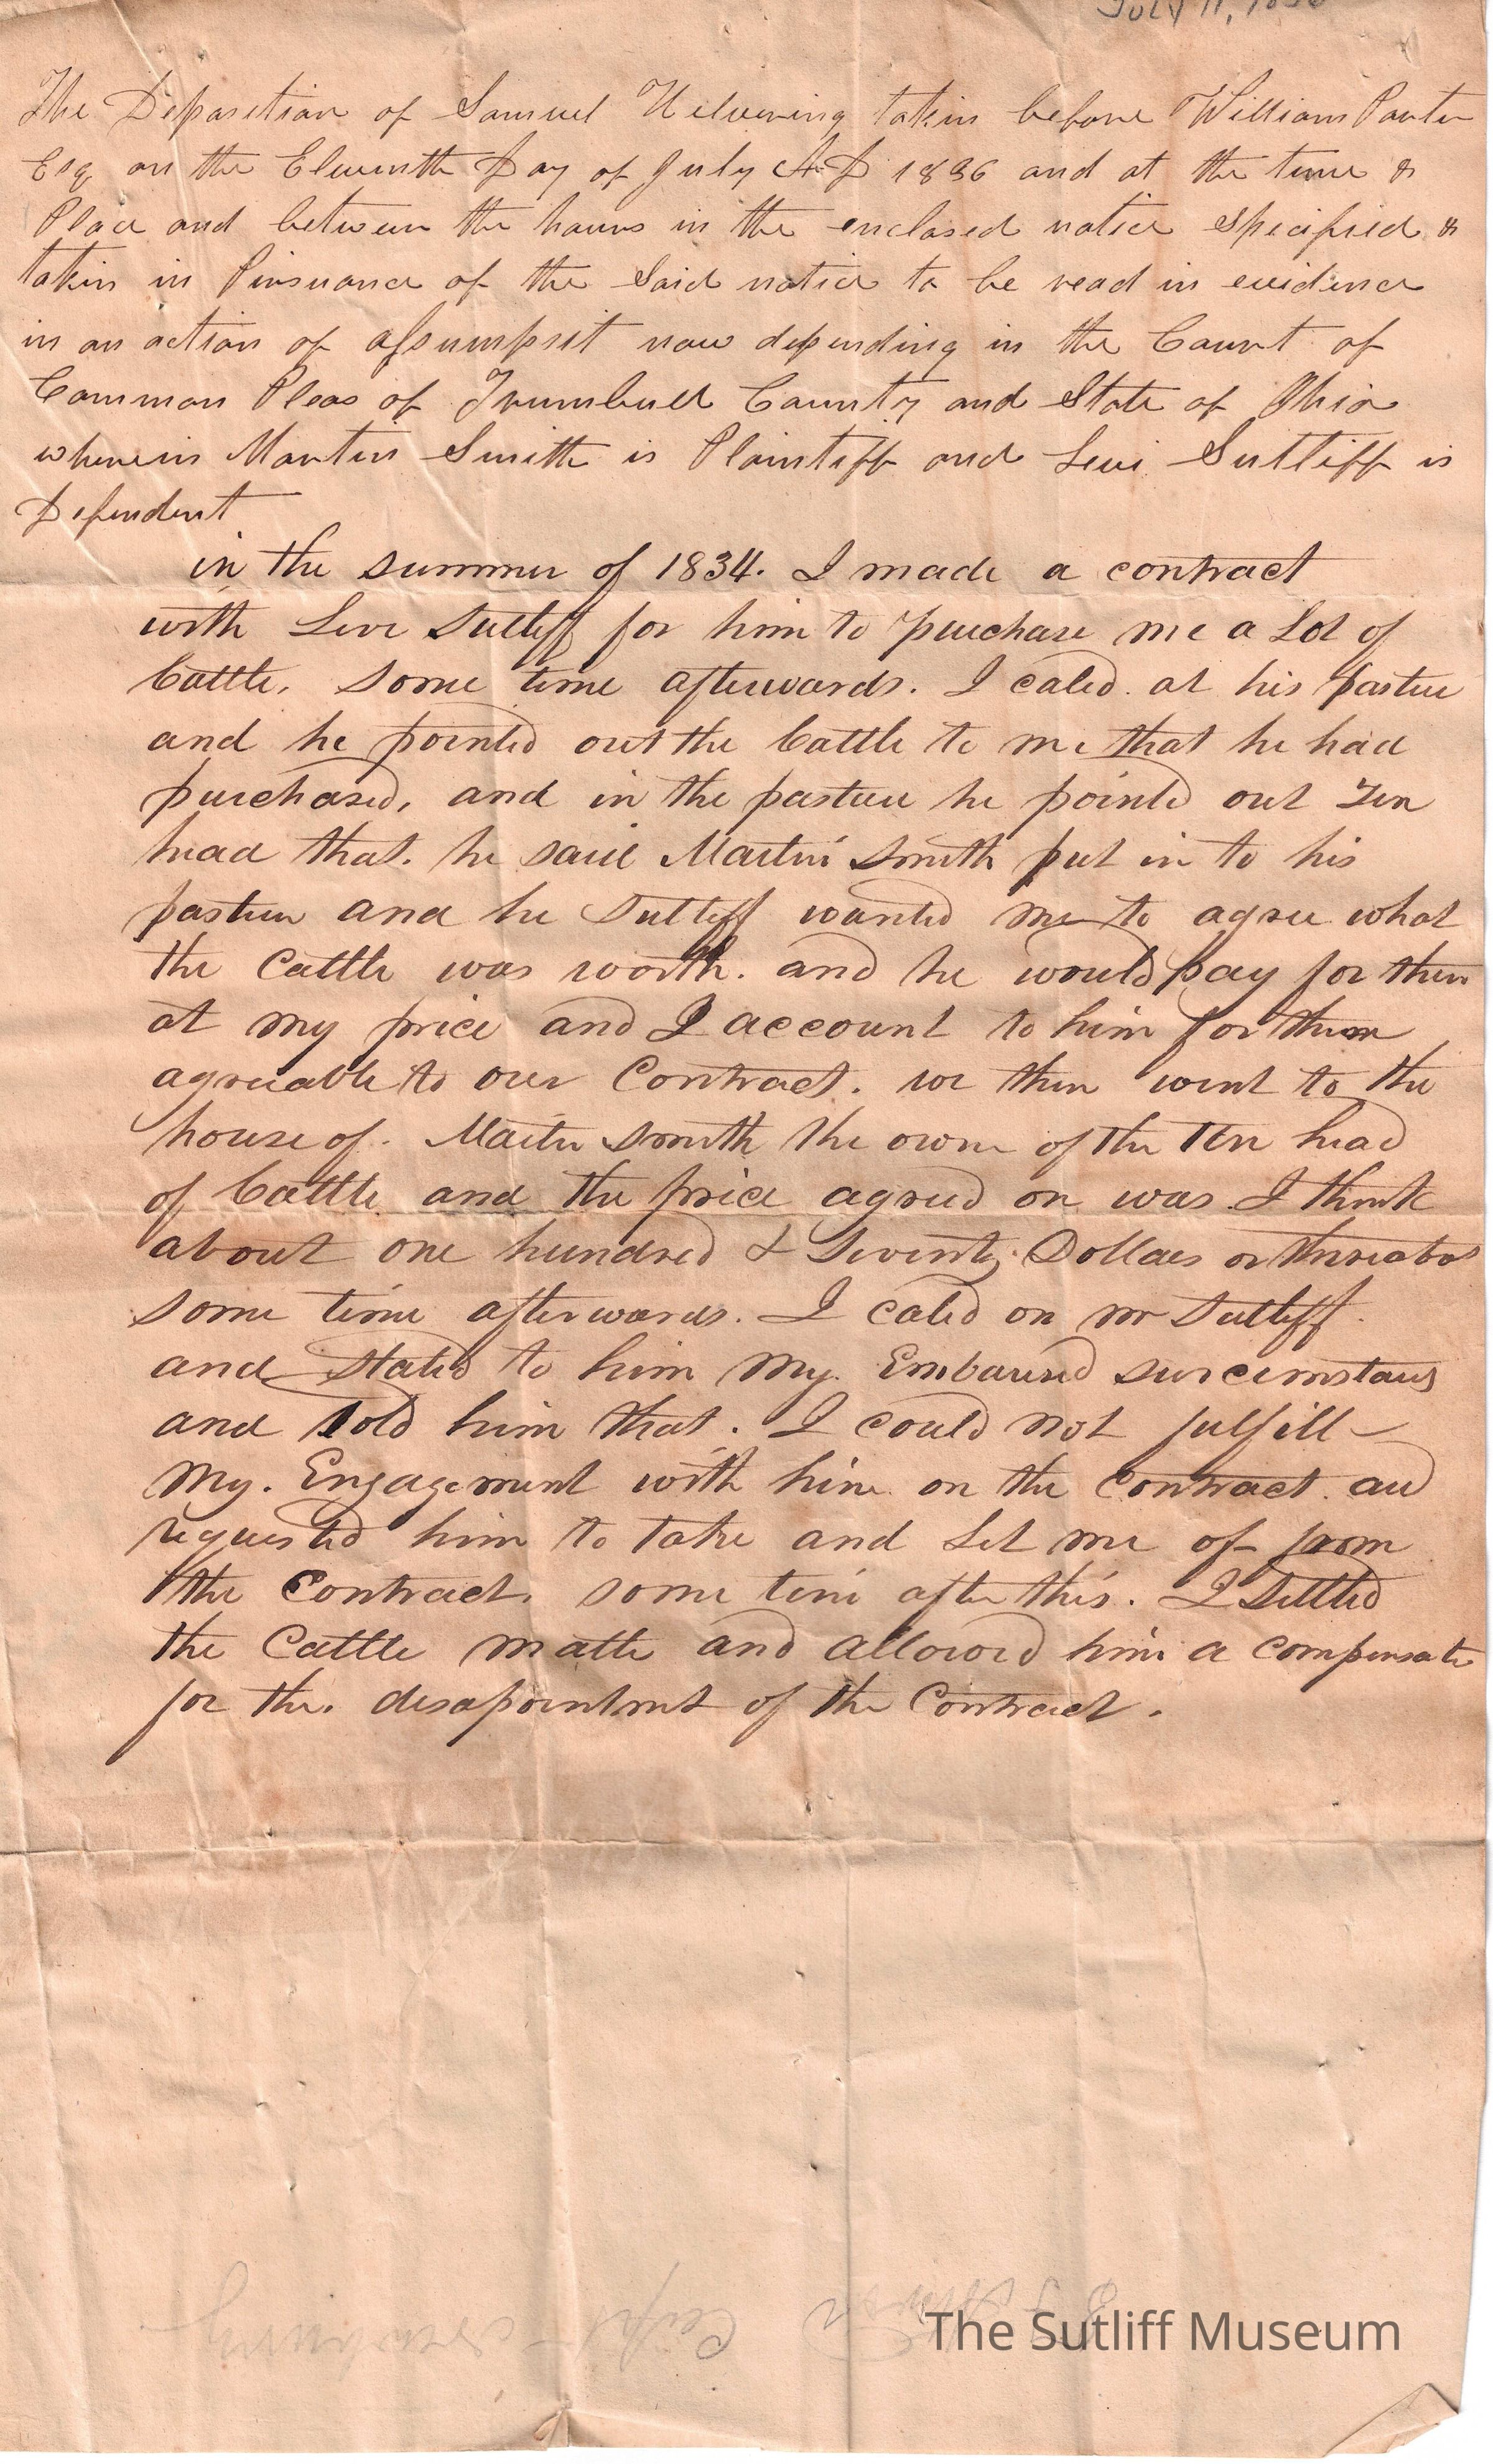 July 11, 1836
The Deposition of Samuel taken before William Porter
Esq on the Eleventh Day of July A.D 1836 and at the time &
Place and between the hours in the enclosed notice specified &
taken in Pursuance of the said notice to be read in evidence
in an action of assumpsit now depending in the Court of
Common Pleas of Trumbull County and State of Ohio
wherein Martin Smith is Plaintiff and Levi Sutliff is
Defendent
in the summer of 1834. I made a contract
with Levi Sutliff for him to purchase me a Lot of
Cattle, some time afterwards. I caled at his pastue
and he pointed out the Cattle to me that he had
purchased, and in the pastuer he pointed out Ten
head that. he said Martin Smith put in to his
pastuer and he Sutliff wanted me to agree what
the Cattle was worth. and he would pay for them
at my price and I account to him for them
agreeable to our Contract. we then went to the
house of. Martin Smith the owner of the ten head
of Cattle and the price agreed on was I think
about one hundred & Seventy Dollars or
some time afterwards. I caled on mr Sutliff.
and stated to him my
and told him that. I could not fulfill
My. Engagement with him on the Contract. and
requested him to take and Let me of from
the Contract. some time after this. I Settled
the Cattle matter and allowed him a
for the. disapointment of the Contract.
The Sutliff Museum